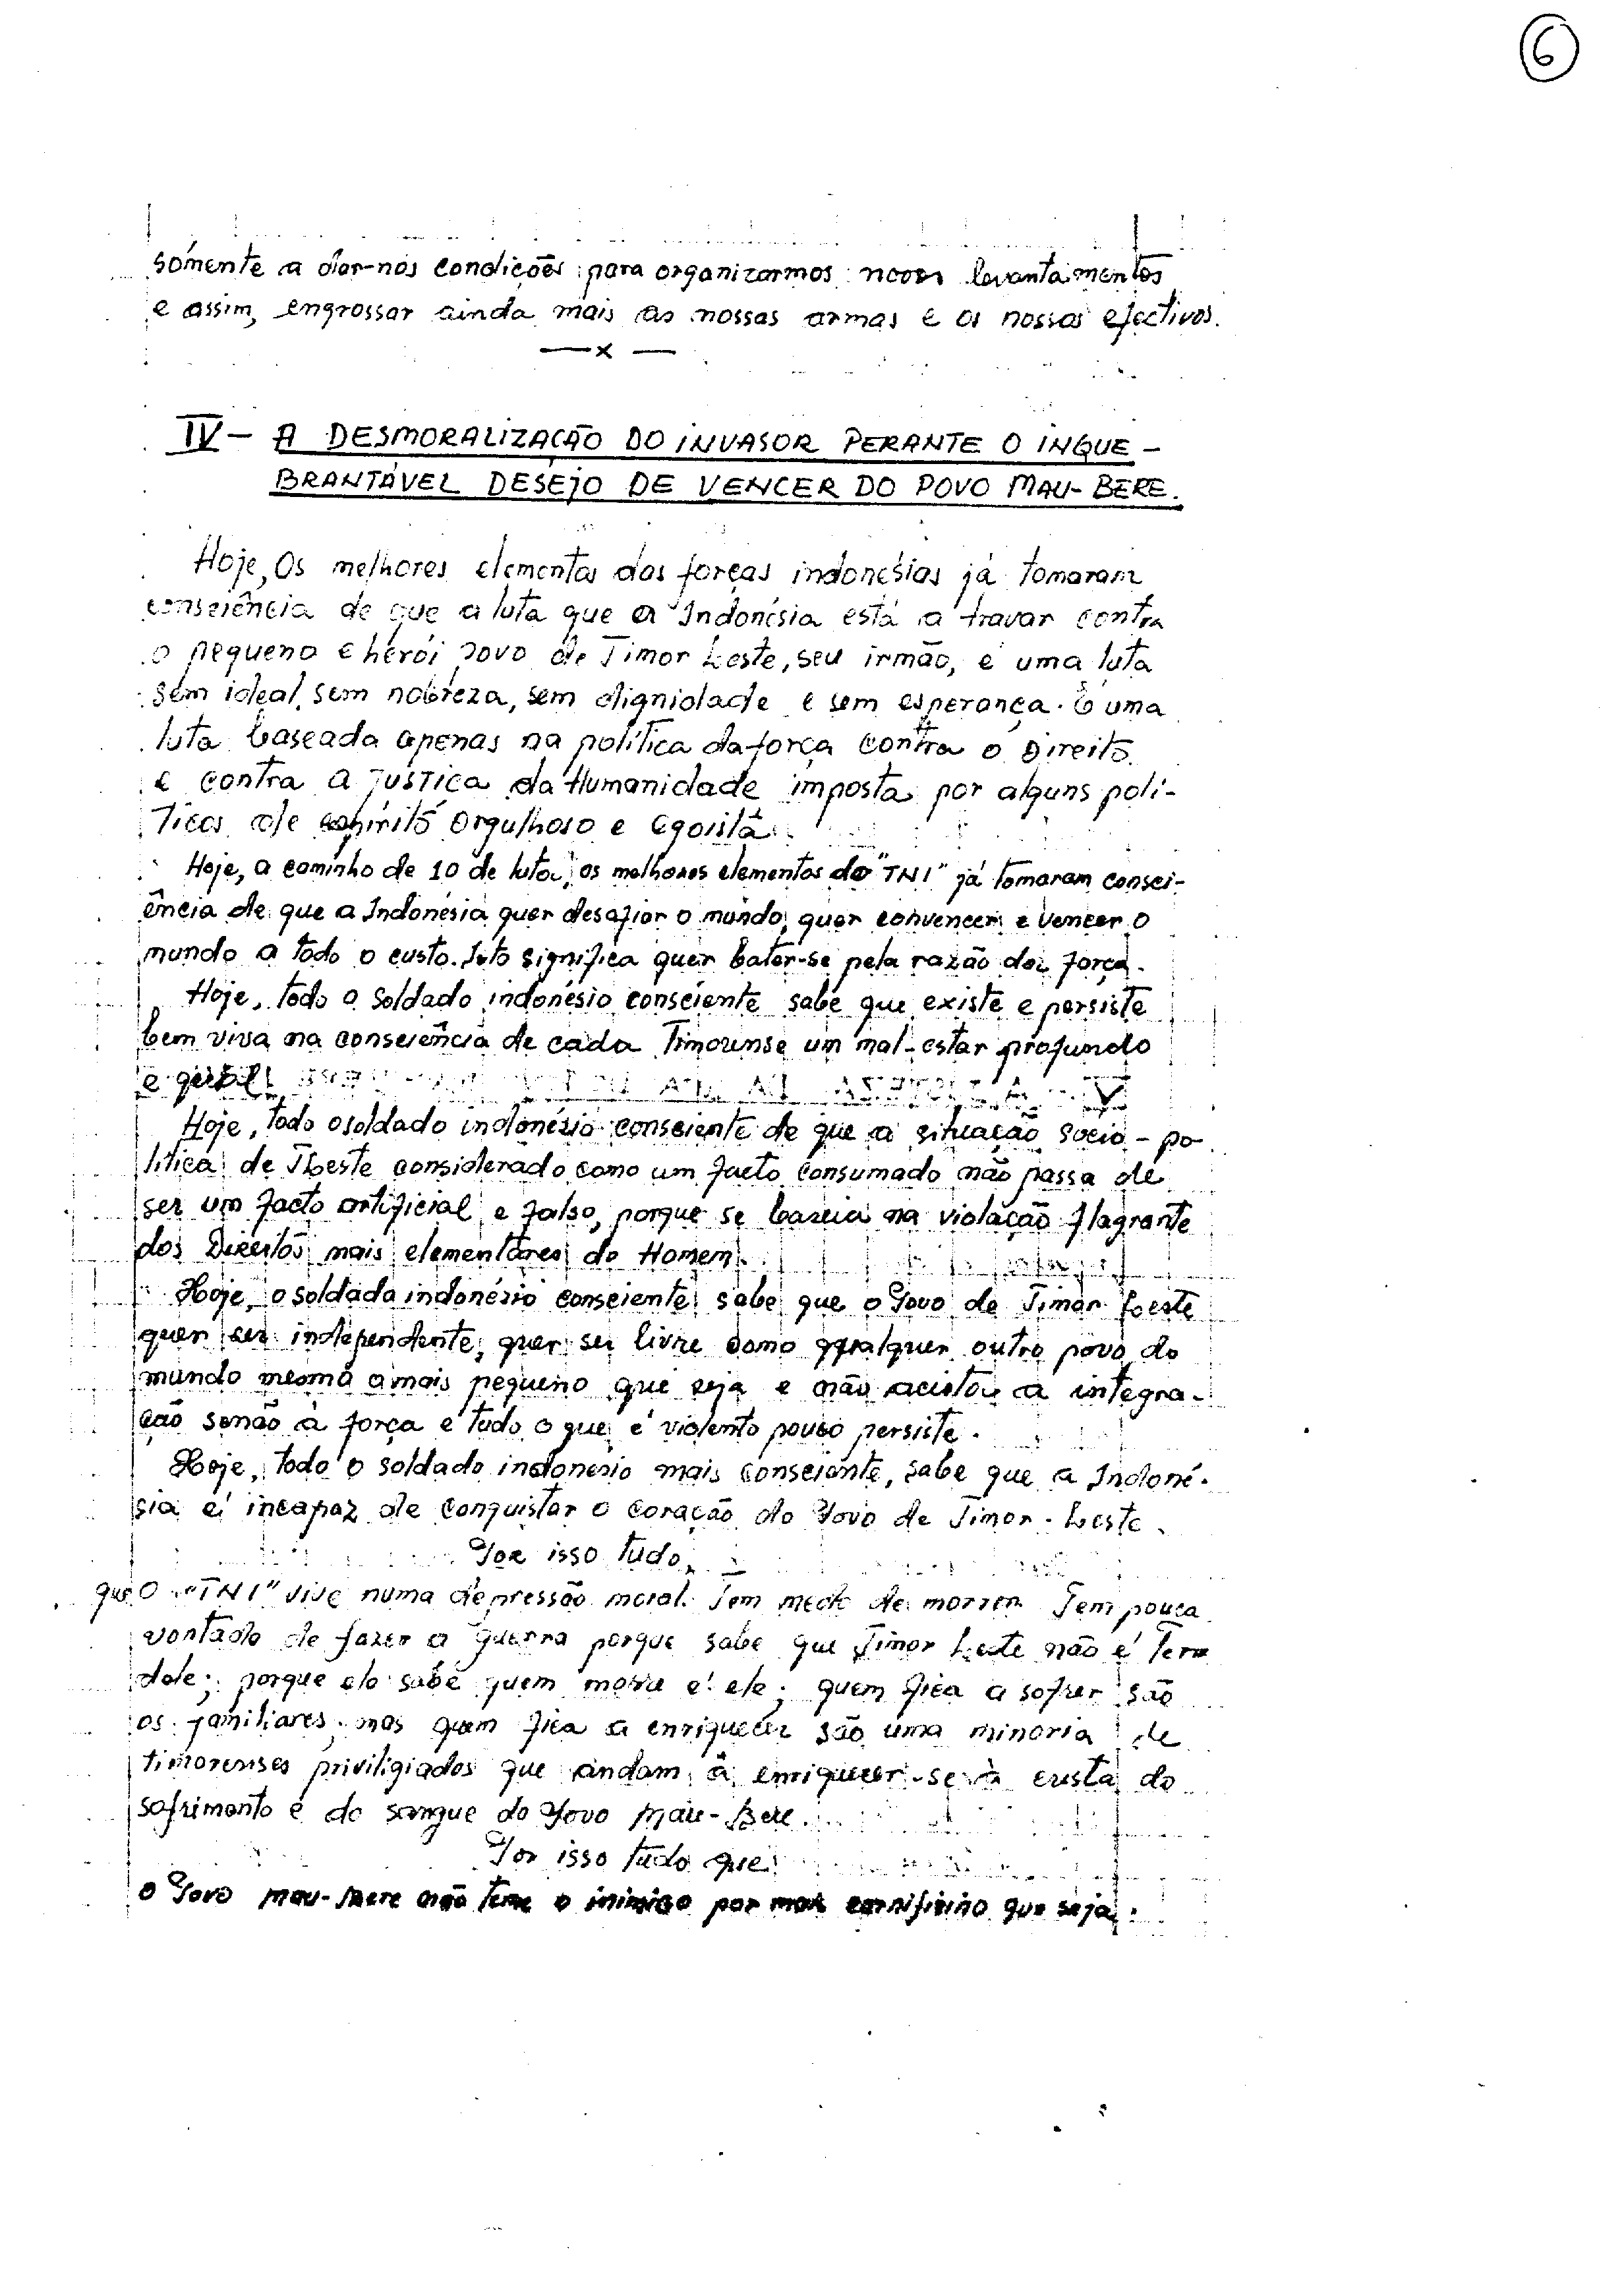 6
sómente a dar-nos condições para organizarmos novos levantamentos
e assim, engrossar ainda mais as nossas armas e os nossos efectivos.
— x —
IV - A DESMORALIZAÇÃO DO INVASOR PERANTE O INQUE-
BRANTÁVEL DESEJO DE VENCER DO POVO MAU-BERE.
Hoje, Os melhores elementos das forças indonésias já tomaram
consciência de que a luta que a Indonésia está a travar contra
o pequeno e herói povo de Timor Leste, seu irmão, é uma luta
sem ideal, sem nobreza, sem dignidade e sem esperança. É uma
luta baseada apenas na política da força contra o Direito
e contra a justiça da Humanidade imposta por alguns polí-
ticos de espírito orgulhoso e egoista.
Hoje, a caminho de 10 de luta, os melhores elementos do "TNI" já tomaram consci-
ência de que a Indonésia quer desafiar o mundo, quer convencer e vencer o
mundo a todo o custo. Isto significa quer bater-se pela razão da força.
Hoje, todo o soldado indonésio consciente sabe que existe e persiste
bem viva na consciência de cada Timorense um mal-estar profundo
e geral
Hoje, todo o soldado indonésio consciente de que a situação sócio-po-
lítica de TLeste considerado como um facto consumado não passa de
ser um facto artificial e falso, porque se baseia na violação flagrante
dos Direitos mais elementares do Homem.
Hoje, o soldado indonésio consciente sabe que o Povo de Timor Leste
quer ser independente, quer ser livre como qualquer outro povo do
mundo mesmo o mais pequeno que seja e não aceitou a integra-
ção senão à força e tudo o que é violento pouco persiste.
Hoje, todo o soldado indonésio mais consciente, sabe que a Indoné-
sia é incapaz de conquistar o coração do Povo de Timor-Leste.
Por isso tudo,
que O "TNI" vive numa depressão moral. Tem medo de morrer. Tem pouca
vontade de fazer a guerra porque sabe que Timor Leste não é Terra
dele; porque ele sabe quem morre é ele; quem fica a sofrer são
os familiares, mas quem fica a enriquecer são uma minoria de
timorenses priviligiados que andam a enriquecer-se à custa do
sofrimento e do sangue do Povo Mau-Bere.
Por isso tudo que
O Povo Mau-Bere não teme o inimigo por mais que seja.